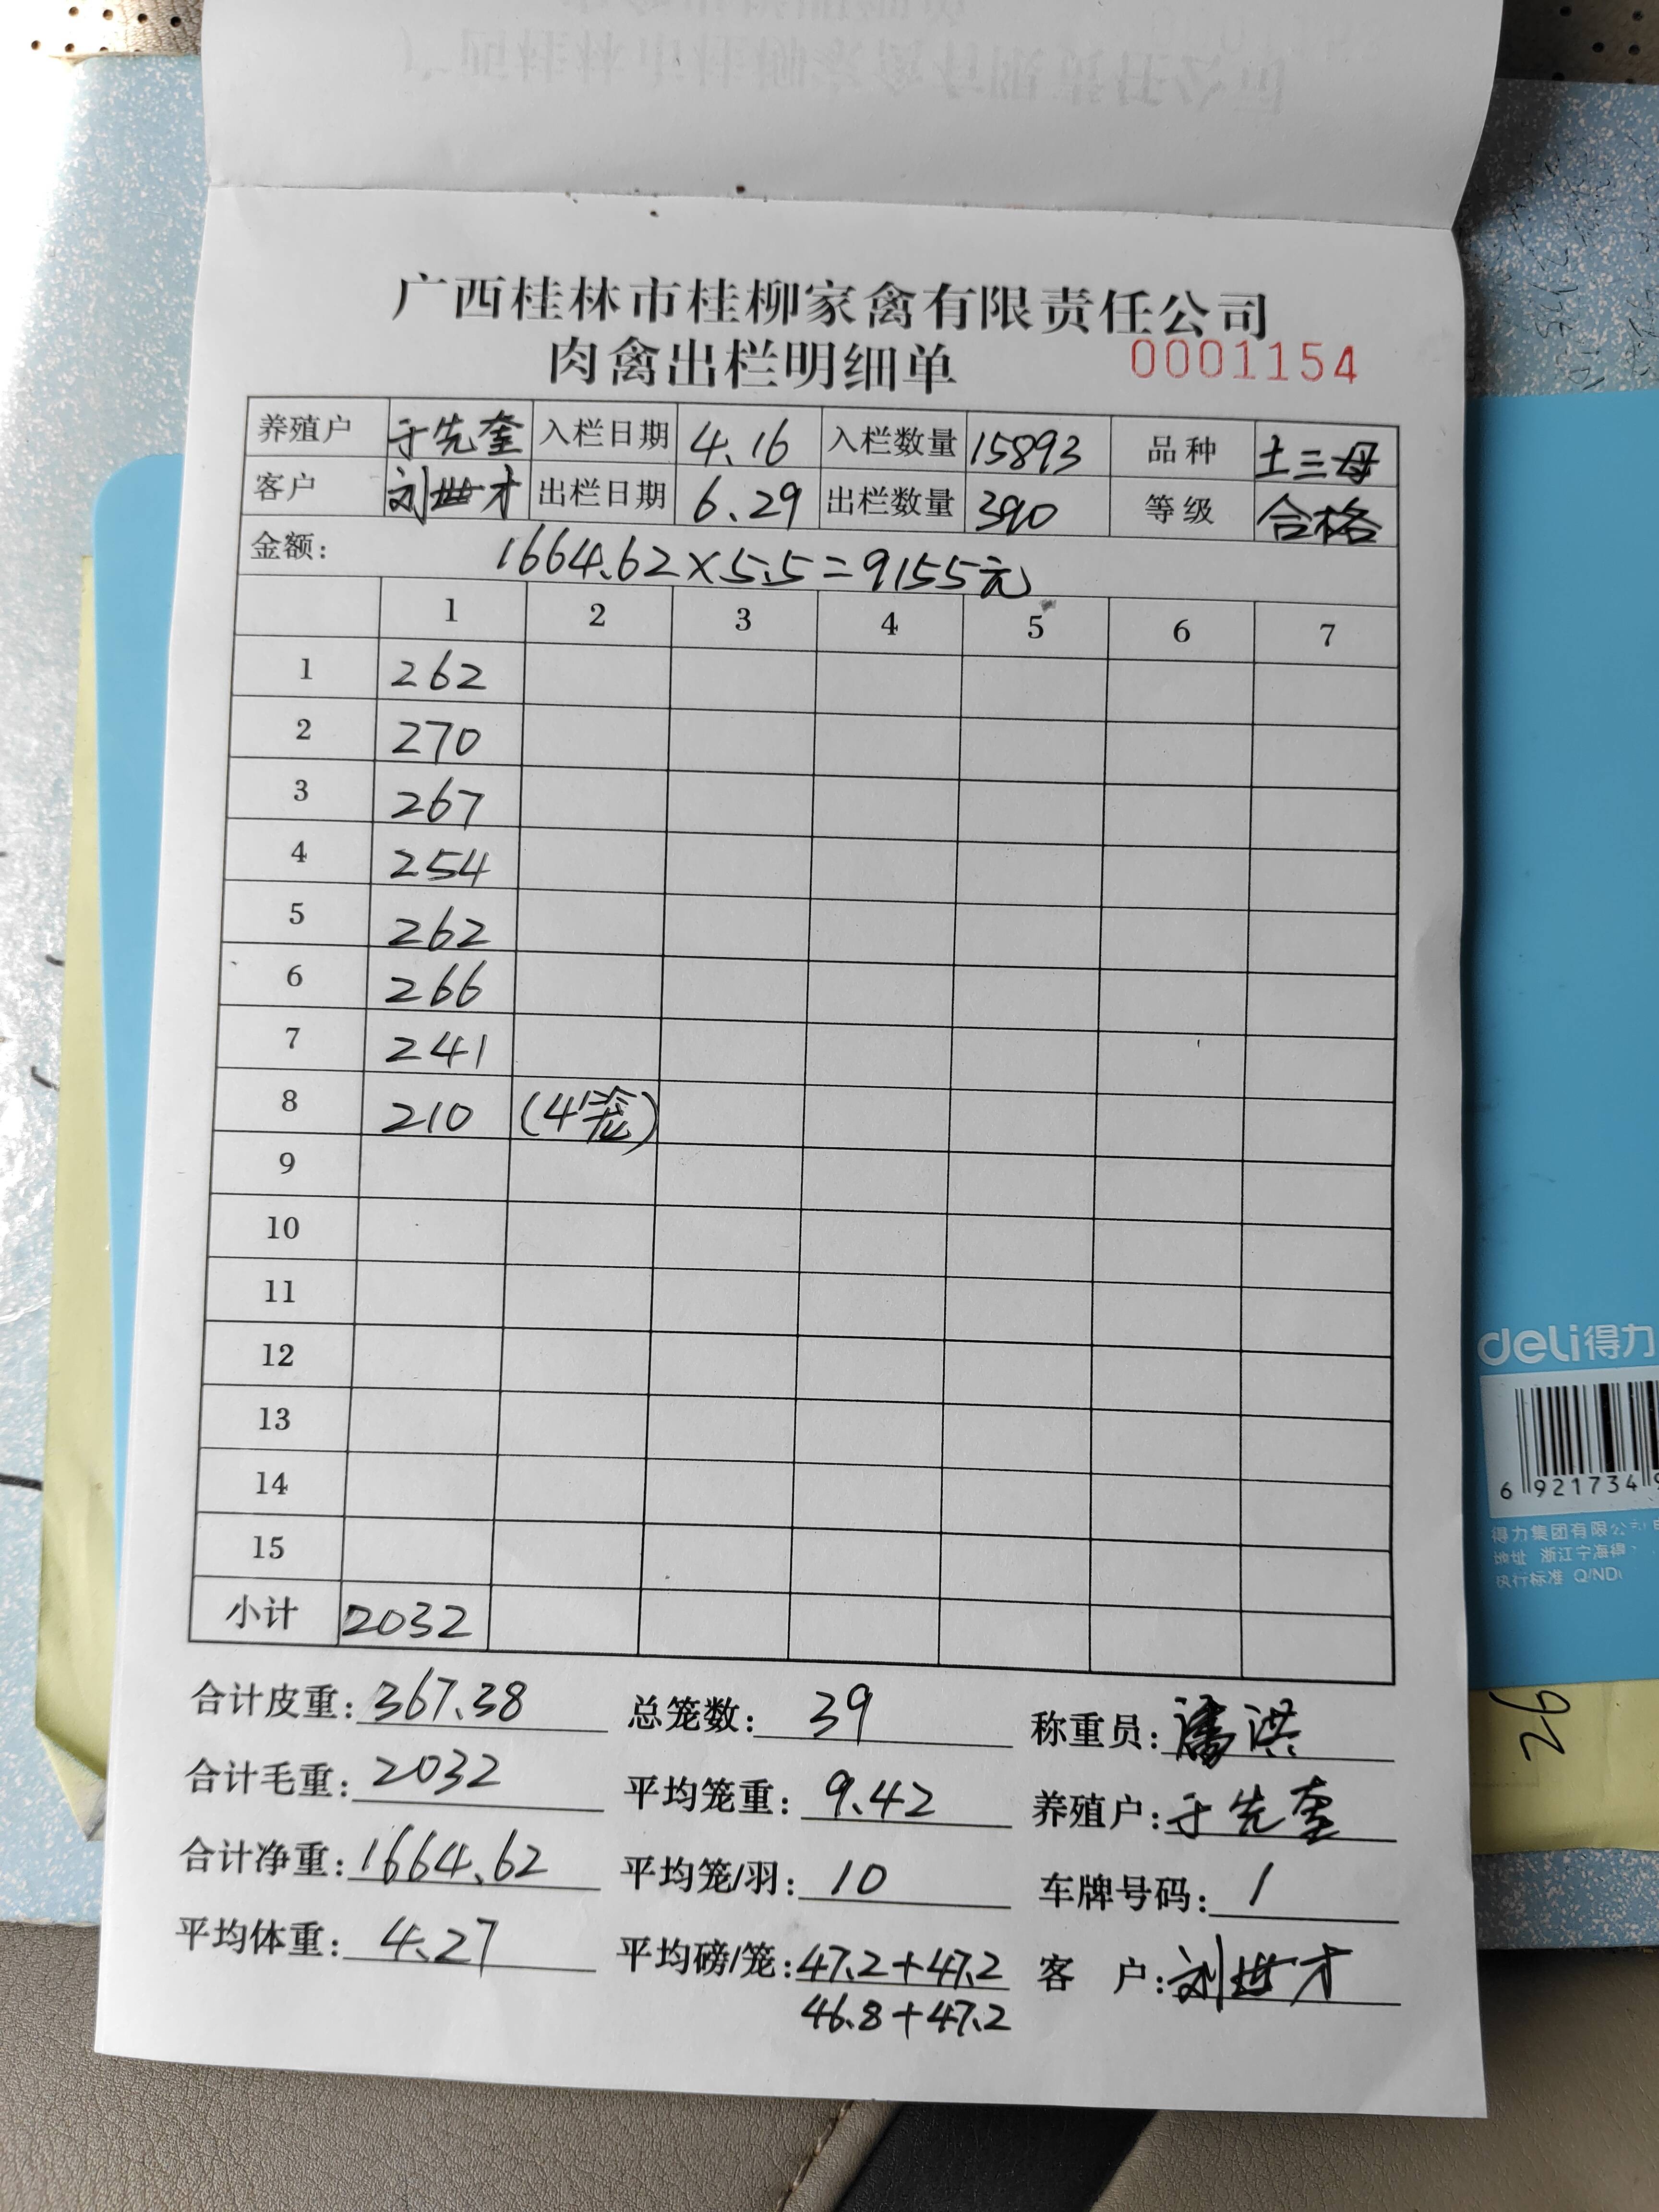 广西桂林市桂柳家禽有限责任公司
肉禽出栏明细单 0001154
养殖户 于先奎 入栏日期 4.16 入栏数量 15893 品种 土三母
客户 刘世才 出栏日期 6.29 出栏数量 390 等级 合格
金额: 1664.62×5.5=9155元
1 2 3 4 5 6 7
1 262
2 270
3 267
4 254
5 262
6 266
7 241
8 210 (4笼)
9
10
11
12
13
14
15
小计 2032
合计皮重: 367.38 总笼数: 39 称重员: 潘洪
合计毛重: 2032 平均笼重: 9.42 养殖户: 于先奎
合计净重: 1664.62 平均笼/羽: 10 车牌号码: 1
平均体重: 4.27 平均磅/笼: 47.2+47.2 客户: 刘世才
46.8+47.2
deli得力
6 921734
得力集团有限公司
地址 浙江宁海得
执行标准 Q/ND
92